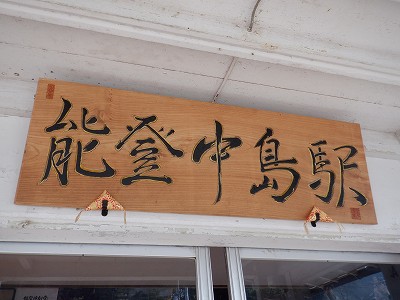 能登中島駅